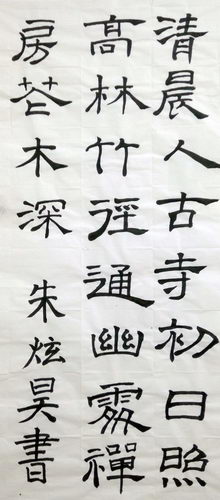 清晨入古寺初日照
高林竹徑通幽處禪
房花木深 朱炫昊書